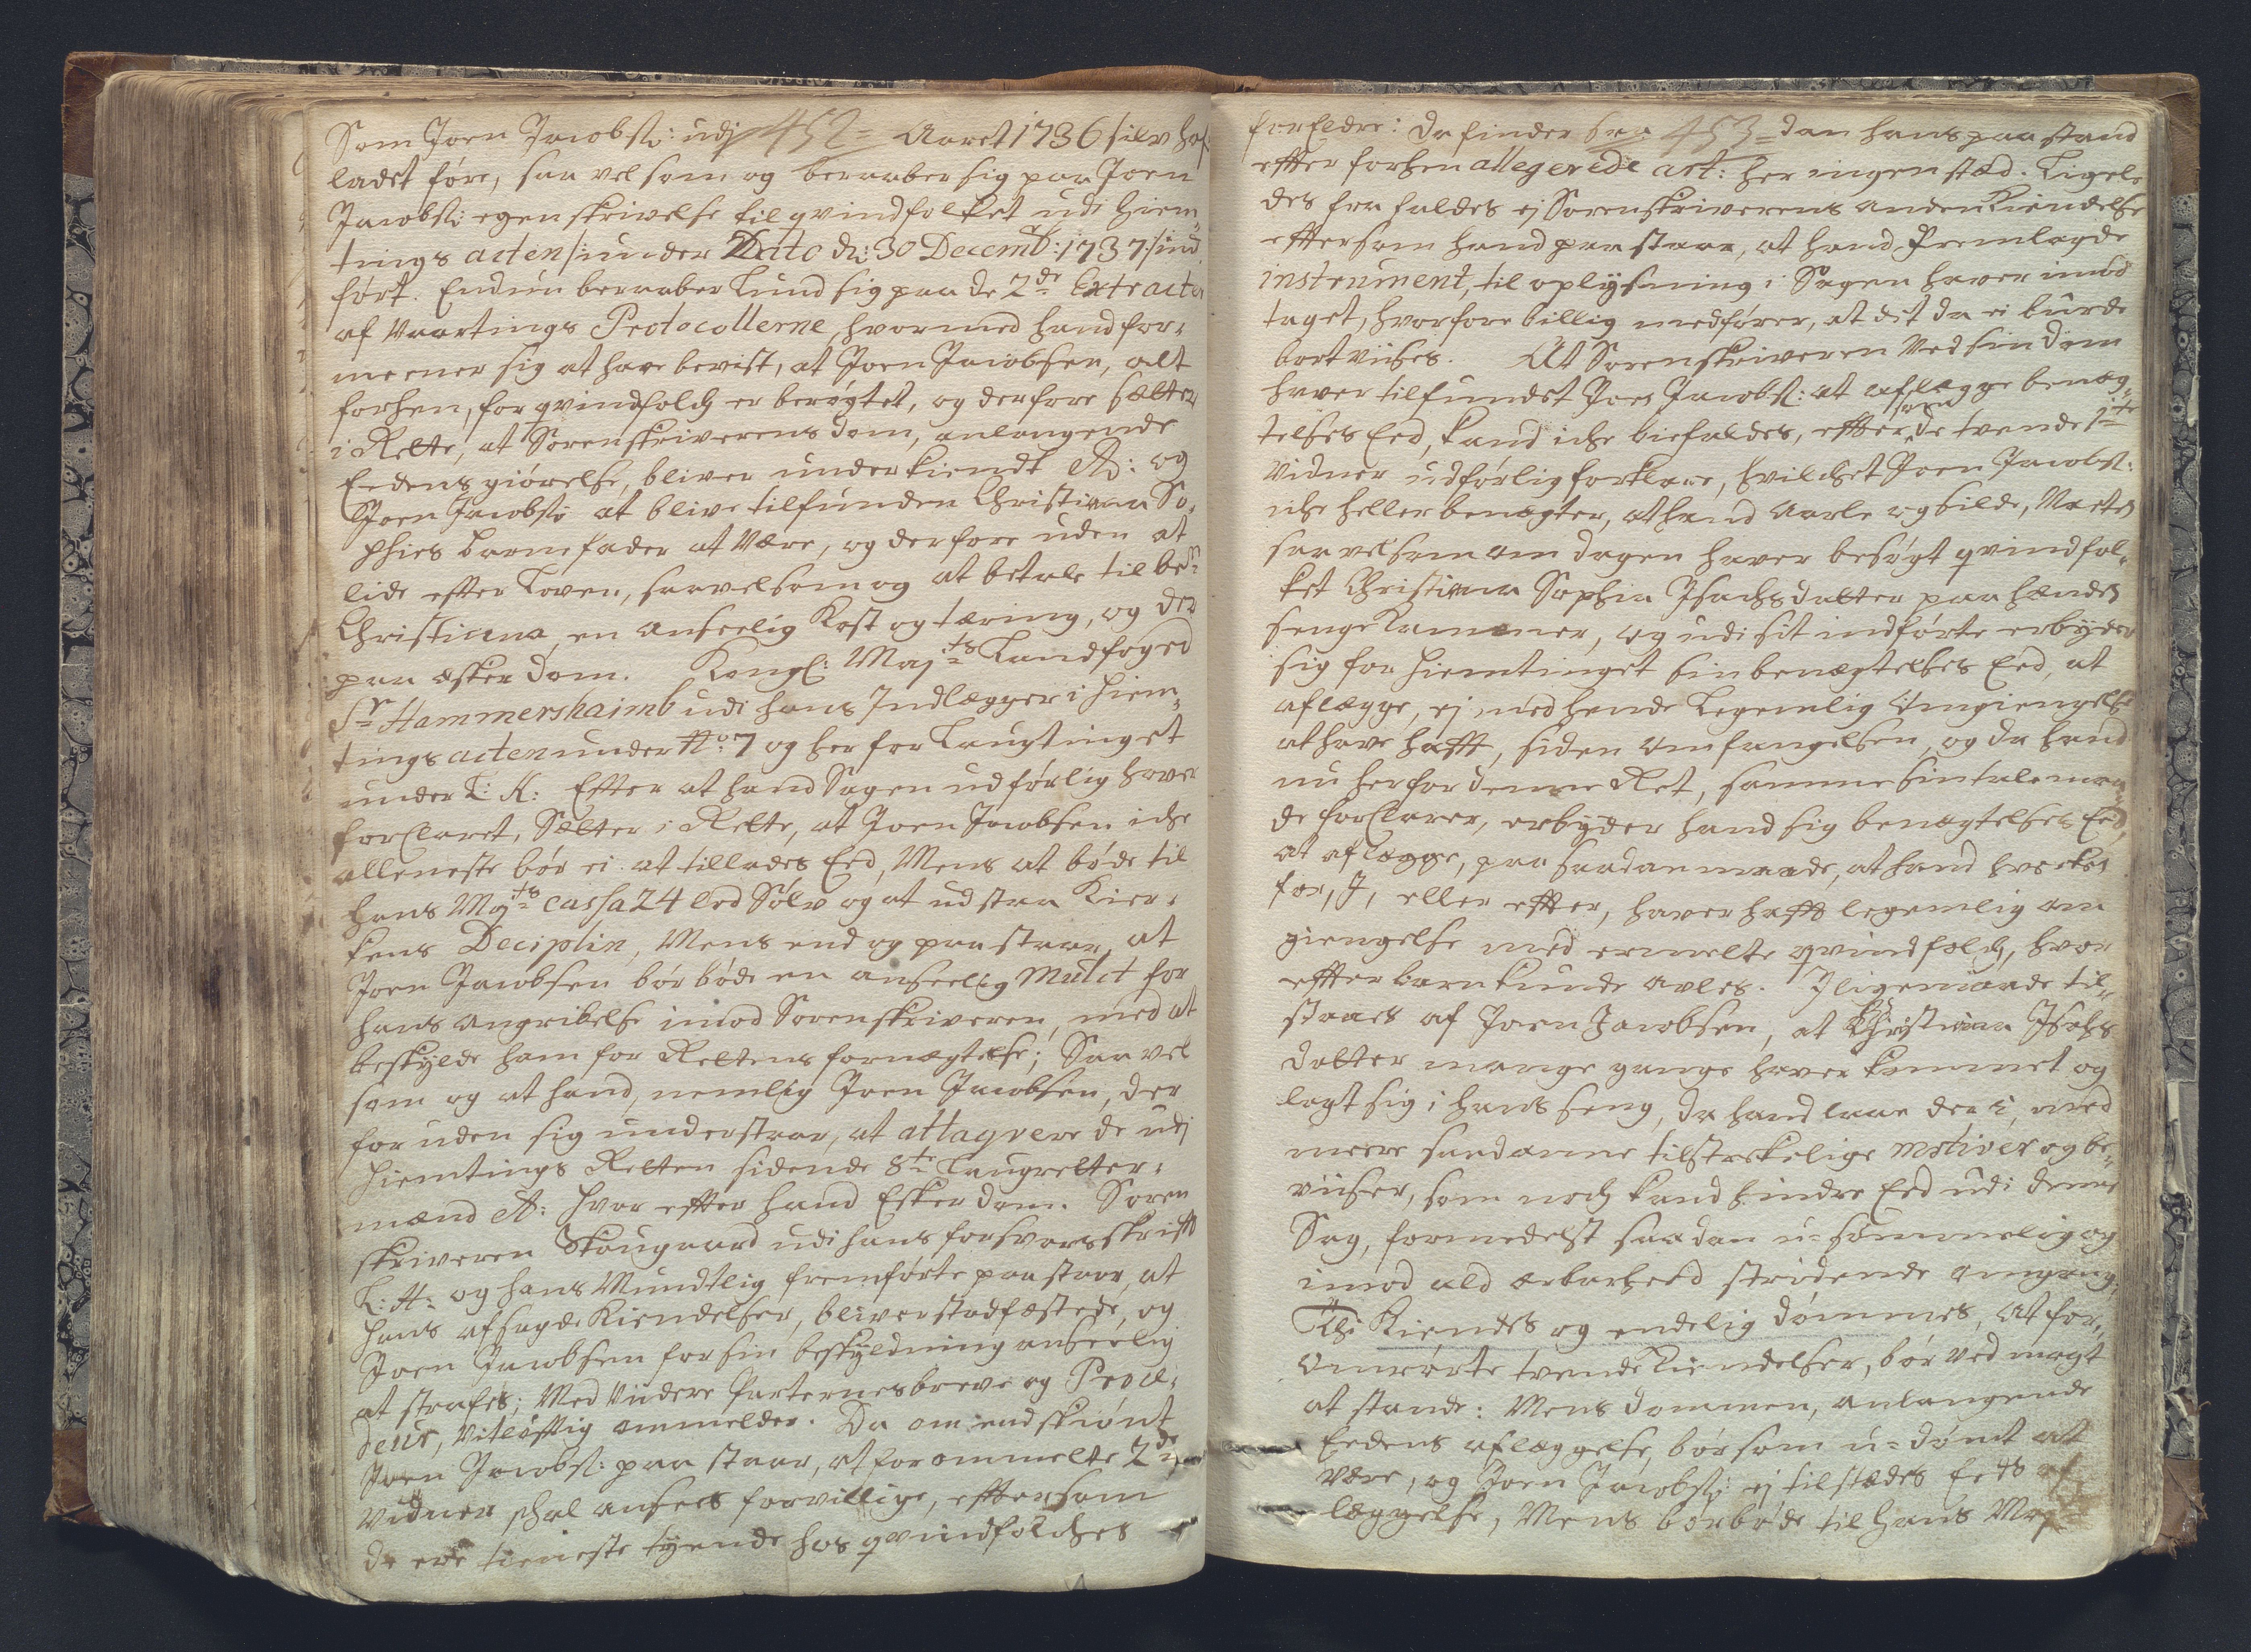 Som Joen Jacobs: udj 452 = Aaret 1736 silv haf
ladet føre, saa vel som og beraaber sig paa Joen
Jacobs: egen skrivelse til qvindfolket udi Hiem-
tings acten /: under Dato d: 30 Decemb: 1737 :/ ind
ført. Endnu beraaber Lund sig paa de 2de Extracter
af Vaartings Protocollerne, hvormed hand for-
meener sig at have bevist, at Joen Jacobsen, alt
forhen, for qvindfolch er berøgtet, og derfore sætter
i Rette, at Sorenskriverens dom, anlangende
Eedens giørelse, bliver underkiendt etc: og
Joen Jacobs: at blive tilfunden Christiana So-
phies barnefader at være, og derfore uden at
lide effter Loven, saavelsom og at betale til bem:
Christiana, en anseelig Kost og tæring, og der
paa æsker dom. Kongl: Maj:ts Landfoged
Sr Hammershaimb udi hans Indlægger i Hiem-
tings acten under No: 7 og her for Laugtinget
under L: K: Effter at hand Sagen udførlig haver
forklaret, Sætter i Rette, at Joen Jacobsen iche
alleneste bør ei at tillades Eed, Mens at bøde til
hans Maj:ts cassa 24 lod Sølv og at udstaa Kier-
kens Deciplin, Mens end og paastaar, at
Joen Jacobsen bør bøde en anseelig Mulct for
hans angribelse imod Sorenskriveren, med at
beskylde ham for Rettens fornægtelse; Saa vel
som og at hand, nemlig Joen Jacobsen, der
for uden sig understaar, at attaqvere de udj
Hiemtings Retten sidende 8te Laugretter-
mænd etc: hvor effter hand Esker dom. Soren
skriveren Skougaard udi hans forsvarsskrifft
L: A: og hans Mundtlig fremførte paastaar, at
hans afsagde Kiendelser, bliver stadfæstede, og
Joen Jacobsen for sin beskyldning anseelig
at strafes; Med Viidere Parternes breve og Proce-
deur, vitløfftig ommelder. Da om endskiønt
Joen Jacobs: paa staar, at forommelte 2de
Vidner schal ansees forvillige, effter som
de ere tieneste tyende hos qvindfolches
forældre: da finder 453 = dan hans paa stand
effter forhen allegerede art: her ingen stæd. Ligele
des fra faldes ej Sorenskriverens anden Kiendelse
effter som hand paa staar, at hand Fremlagde
instrument, til oplysning i Sagen haver imod
taget, hvorfore billig medfører, at det da ei burde
bortviises. At Sorenskriveren Ved sin dom
haver tilfundet Joen Jacobs: at aflægge benæg-
telses Eed, kand iche biefaldes, effter som de tvende
Vidner udførlig forklare, hvilchet Joen Jacobs:
iche heller benægter, at hand aarle og silde, Nætter
saavelsom om dagen haver besøgt qvindfol-
ket Christiana Sophia Isachsdatter paa hendes
senge Kammer, og udi sit indførte erbyder
sig for Hiemtinget sin benægtelses Eed, at
aflægge, ej med hende Legemlig Omgiengelse
at have hafft, siden Omfangelsen, og da hand
nu her for denne Ret, samme sin talemaa-
de forklarer, erbyder hand sig benægtelses Eed,
at aflægge, paa saadan maade, at hand hverken
for, I, eller effter, haver hafft legemlig om
giengelse med ermelte qvindfolch, hvor
effter barn kunde avles. Iligemaade til-
staaes af Joen Jacobsen, at Christiana Isachs
datter mange gange haver kommet og
lagt sig i hans seng, da hand laae der i, med
meere saadanne tilstrekelige motiver og be-
viiser, som noch kand hindre Eed udi denne
Sag, formedelst saadan u-sømmelig og
imod ald ærbarhed stridende omgang,
Thi Kiendes og endelig dømmes, At for-
ommrørte tvende Kiendelser, bør ved magt
at stande: Mens dommen, anlangende
Eedens aflæggelse, bør som u-dømt at
være, og Joen Jacobs: ej tilstædes Eeds af
læggelse, Mens bør bøde til hans Maj